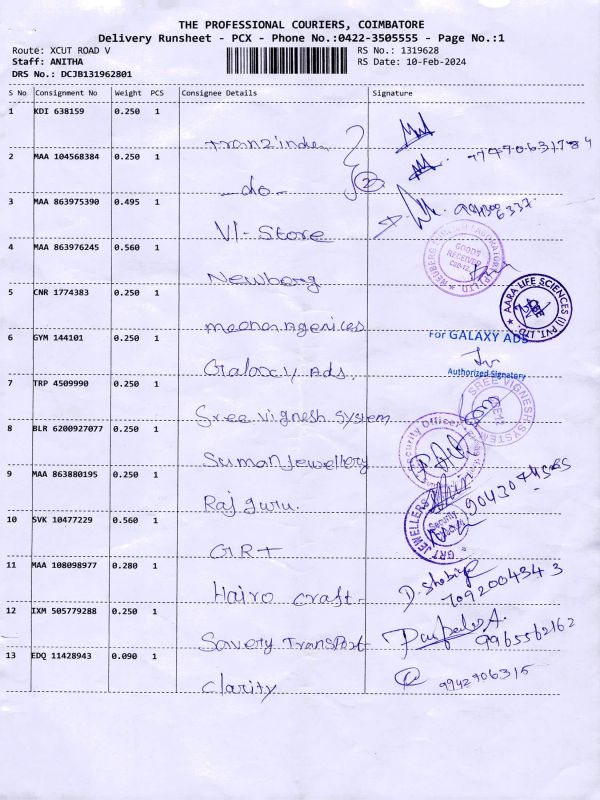 THE PROFESSIONAL COURIERS, COIMBATORE
Delivery Runsheet - PCX - Phone No.:0422-3505555 - Page No.:1
Route: XCUT ROAD V RS No.: 1319628
Staff: ANITHA RS Date: 10-Feb-2024
DRS No.: DCJB131962801
S No Consignment No Weight PCS Consignee Details Signature
1 KDI 638159 0.250 1
2 MAA 104568384 0.250 1 -do- 2
3 MAA 863975390 0.495 1 VI-Store
4 MAA 863976245 0.560 1 Newberg
GOODS RECEIVED
5 CNR 1774383 0.250 1
AARA LIFE SCIENCES (I) PVT. LTD.
6 GYM 144101 0.250 1 Galaxy Ads.
For GALAXY ADS
Authorized Signatory
7 TRP 4509990 0.250 1 Sree Vignesh System
SREE VIGNESH SYSTEM
8 BLR 6200927077 0.250 1 Suman Jewellery
Security Officer
9 MAA 863880195 0.250 1 Raj guru.
10 SVK 10477229 0.560 1 GRT
GRT JEWELLERS
Security
11 MAA 108098977 0.280 1 Hairo craft-
7092004343
12 IXM 505779288 0.250 1 Savery Transport
9965562162
13 EDQ 11428943 0.090 1 Clarity
9942906315